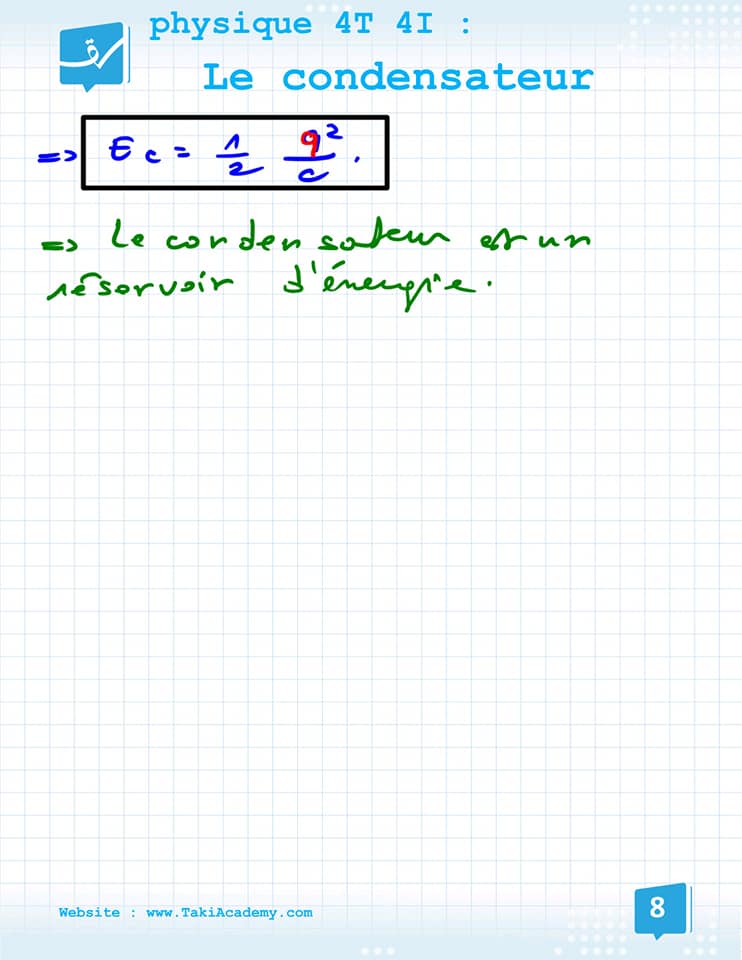 physique 4T 4I :
Le condensateur
=> Ec = 1/2 q²/c .
=> Le condensateur est un
réservoir d'énergie.
Website : www.TakiAcademy.com
8